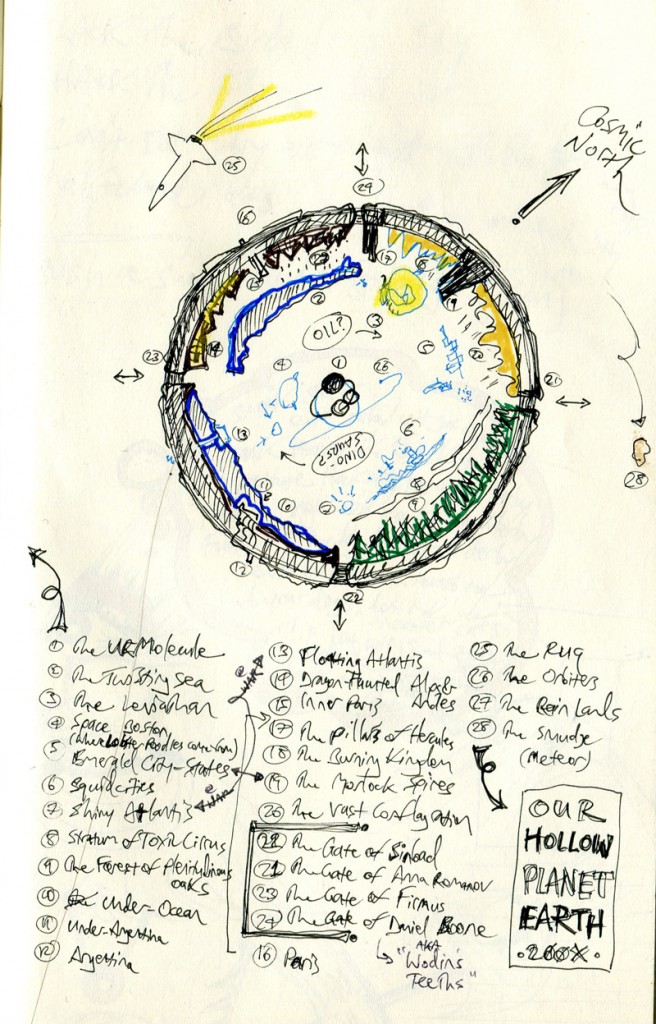 Cosmic
North
25
24
16
17
18
2
19
3
OIL?
23
4
1
26
6
21
28
13
6
DINO-
SAURS?
8
11
10
7
12
22
① The UR Molecule
② The Twisting Sea
③ The Leviathan
④ Space Boston
(Where Lobster Poodles come from)
⑤ Emerald City-States
⑥ Squidcities
⑦ Shiny Atlantis
WAR
⑧ Stratum of Toxic Cirrus
⑨ The Forest of Plentitudinous
oaks
⑩ Under-Ocean
⑪ Under-Argentina
⑫ Argentina
WAR
⑬ Floating Atlantis
⑭ Dragon-Haunted Alps &
Andes
⑮ Inner Paris
⑰ The Pillars of Hercules
⑱ The Burning Kingdom
⑲ The Morlock Spires
⑳ The Vast Conflagration
㉒ The Gate of Sinbad
㉑ The Gate of Anna Romanov
㉓ The Gate of Firmus
㉔ The Gate of Daniel Boone
AKA
"Wodin's
Teeths"
⑯ Paris
㉕ The RUQ
㉖ The Orbiters
㉗ The Rain Lands
㉘ The Smudge
(Meteor)
OUR
HOLLOW
PLANET
EARTH
.200X.